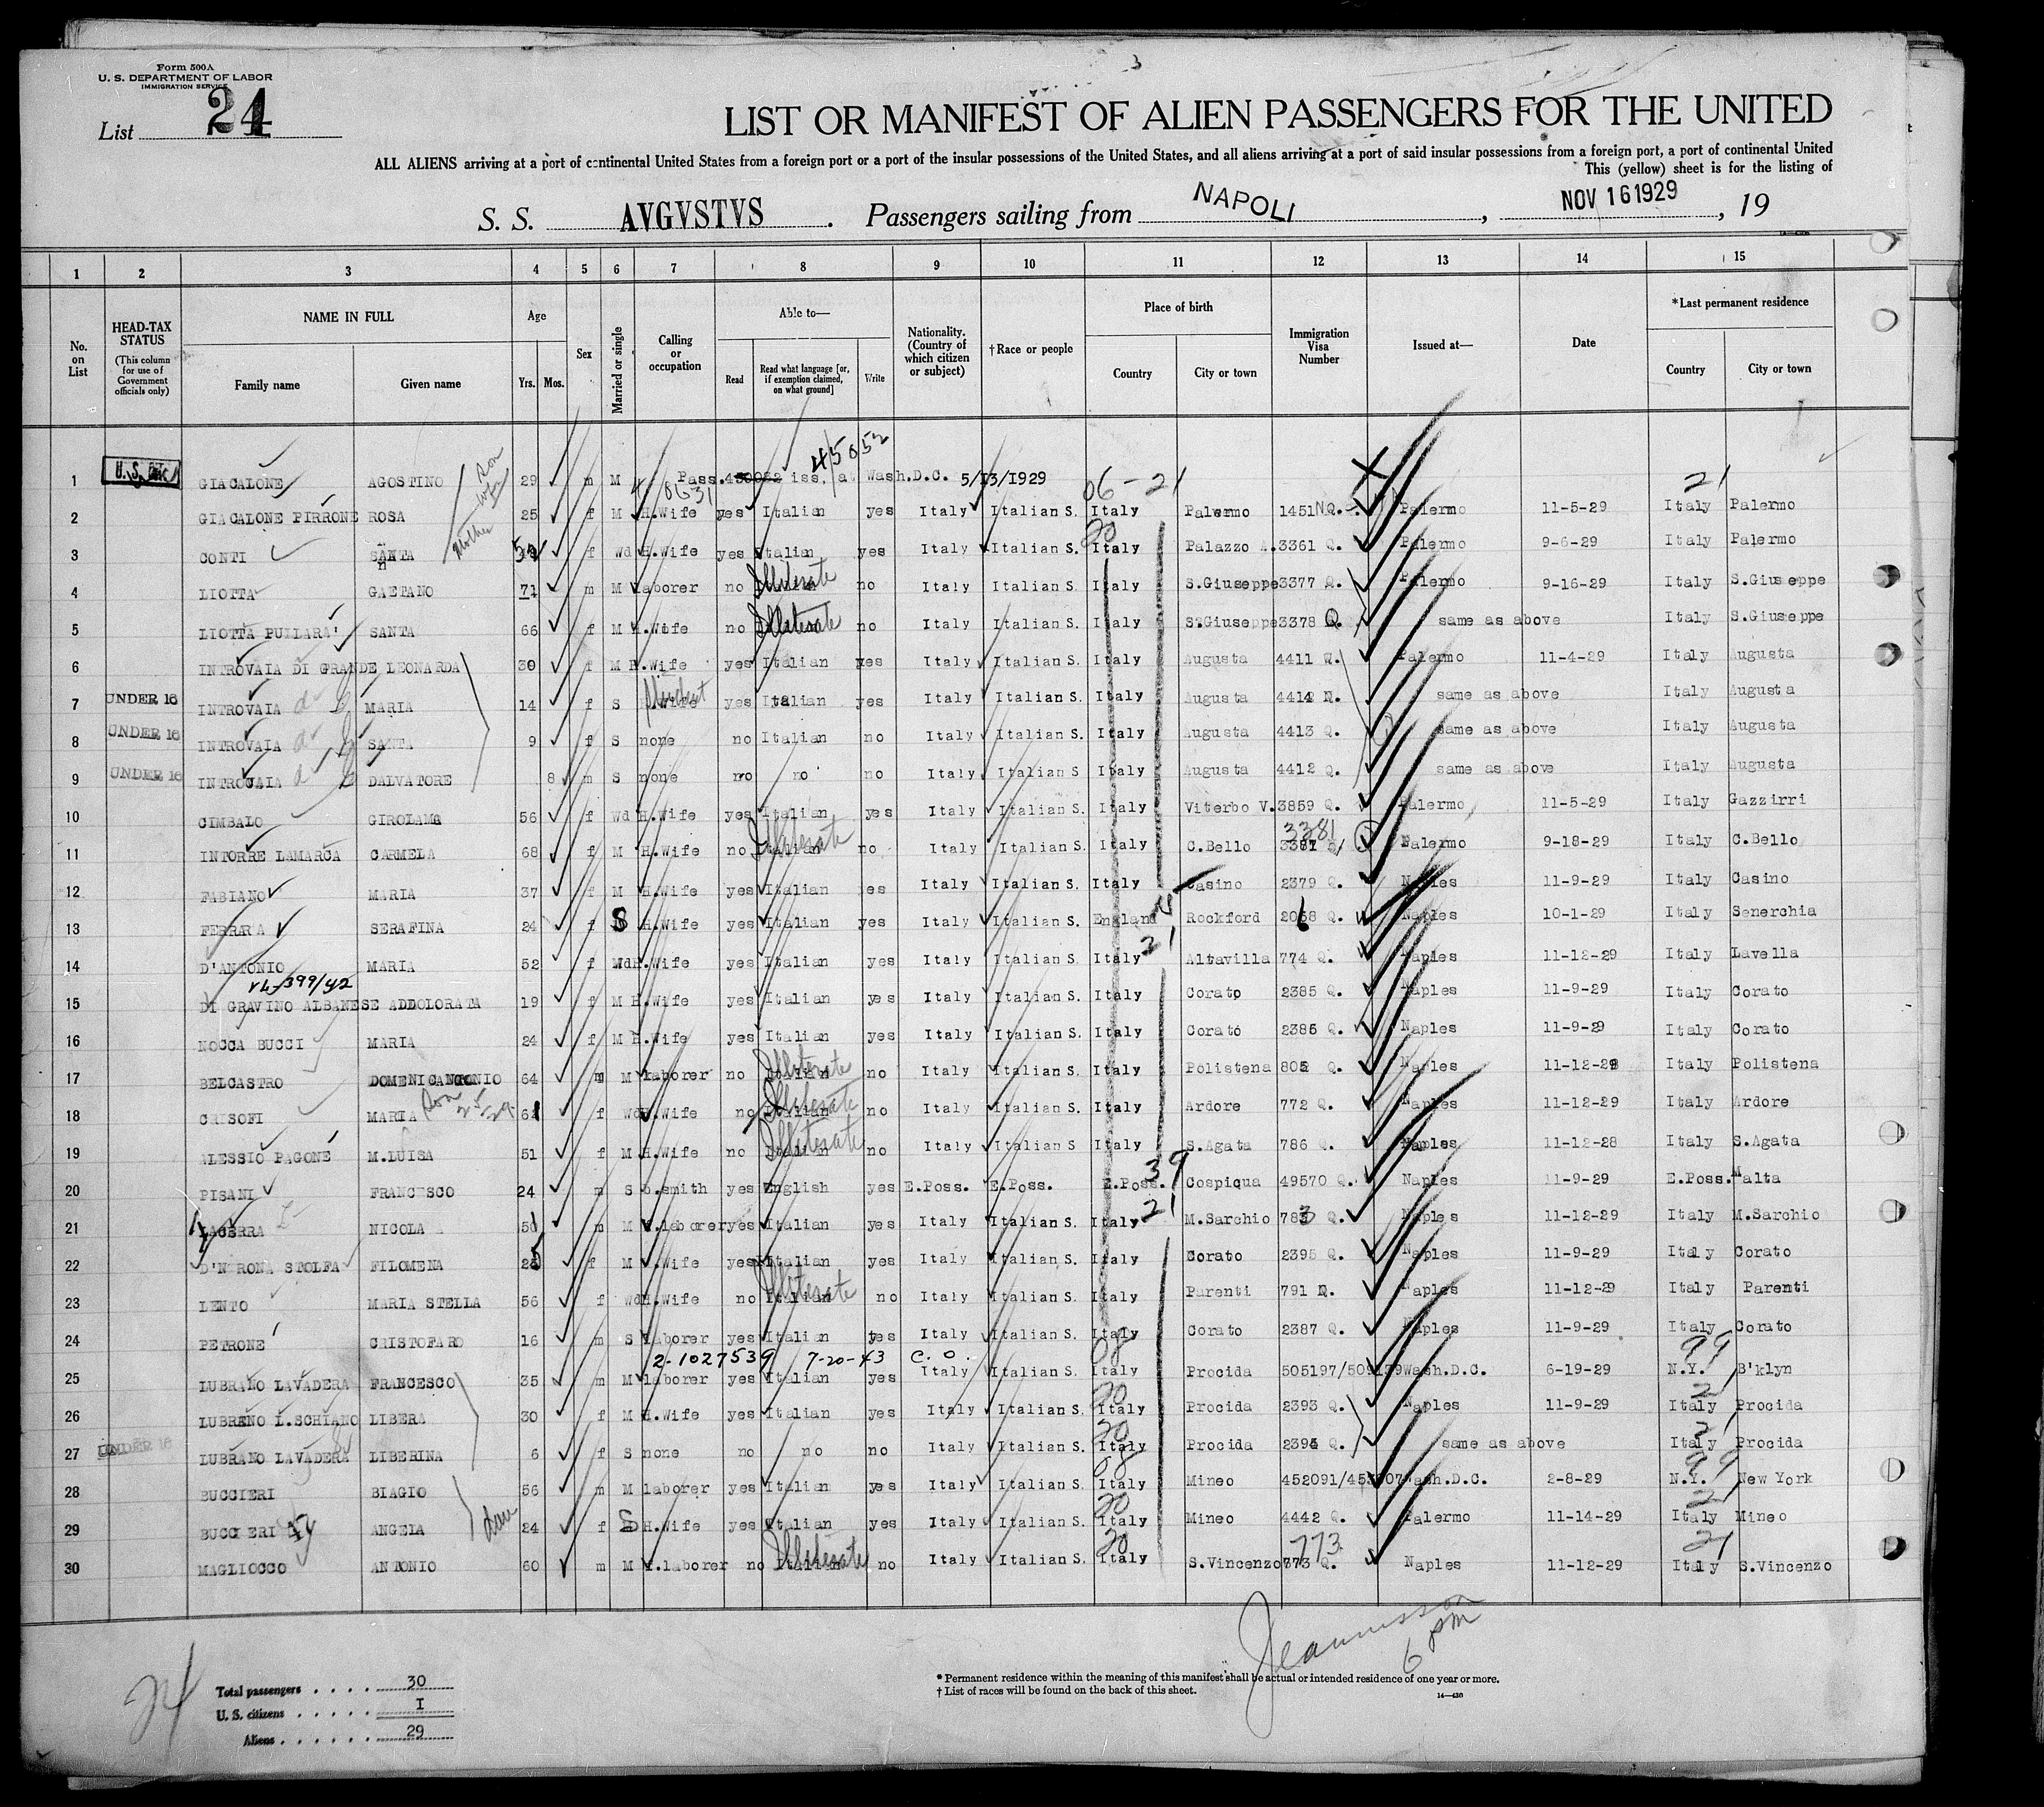 Form 500A
U. S. DEPARTMENT OF LABOR
IMMIGRATION SERVICE
List 24
LIST OR MANIFEST OF ALIEN PASSENGERS FOR THE UNITED
ALL ALIENS arriving at a port of continental United States from a foreign port or a port of the insular possessions of the United States, and all aliens arriving at a port of said insular possessions from a foreign port, a port of continental United
This (yellow) sheet is for the listing of
S. S. AVGVSTVS . Passengers sailing from NAPOLI , NOV 16 1929 , 19
1 2 3 4 5 6 7 8 9 10 11 12 13 14 15
No. on List
HEAD-TAX STATUS (This column for use of Government officials only)
NAME IN FULL
Family name Given name
Age
Yrs. Mos.
Sex
Married or single
Calling or occupation
Able to—
Read
Read what language [or, if exemption claimed, on what ground]
Write
Nationality. (Country of which citizen or subject)
†Race or people
Place of birth
Country City or town
Immigration Visa Number
Issued at—
Date
*Last permanent residence
Country City or town
1 GIACALONE AGOSTINO son 29 m M Pass. iss. at Wash.D.C. 5/13/1929 45852 06-21 21
2 GIACALONE PIRRONE ROSA wife 25 f M H.Wife yes Italian yes Italy Italian S. Italy Palermo 1451 N.Q. Palermo 11-5-29 Italy Palermo
3 CONTI SANTA mother f Wd H.Wife yes Italian yes Italy Italian S. Italy Palazzo A. 3361 Q. Palermo 9-6-29 Italy Palermo
4 LIOTTA GAETANO 71 m M laborer no Illiterate no Italy Italian S. Italy S.Giuseppe 3377 Q. Palermo 9-16-29 Italy S.Giuseppe
5 LIOTTA PULLARA' SANTA 66 f M H.Wife no Illiterate no Italy Italian S. Italy S.Giuseppe 3378 Q. same as above Italy S.Giuseppe
6 INTROVAIA DI GRANDE LEONARDA 30 f M H.Wife yes Italian yes Italy Italian S. Italy Augusta 4411 Palermo 11-4-29 Italy Augusta
7 UNDER 16 INTROVAIA MARIA 14 f S yes Ita yes Italy Italian S. Italy Augusta 4414 same as above Italy Augusta
8 UNDER 16 INTROVAIA SANTA 9 f S none no Italian no Italy Italian S. Italy Augusta 4413 Q. same as above Italy Augusta
9 UNDER 16 INTROVAIA DALVATORE 8 m S none no no no Italy Italian S Italy Augusta 4412 Q. same as above Italy Augusta
10 CIMBALO GIROLAMA 56 f Wd H.Wife yes Italian yes Italy Italian S. Italy Viterbo V. 3859 Q. Palermo 11-5-29 Italy Gazzirri
11 INTORRE LAMARCA CARMELA 68 f M H.Wife no Illiterate no Italy Italian S. Italy C.Bello 3381 Palermo 9-18-29 Italy C.Bello
12 FABIANO MARIA 37 f M H.Wife yes Italian yes Italy Italian S. Italy Casino 2379 Q. Naples 11-9-29 Italy Casino
13 FERRARA SERAFINA 24 f S H.Wife yes Italian yes Italy Italian S. England Rockford Q. Naples 10-1-29 Italy Senerchia
14 D'ANTONIO MARIA 52 f Wd H.Wife yes Italian yes Italy Italian S. Italy Altavilla 774 Q. Naples 11-12-29 Italy Lavella
15 DI GRAVINO ALBANESE ADDOLORATA 19 f M H.Wife yes Italian yes Italy Italian S. Italy Corato 2385 Q. Naples 11-9-29 Italy Corato
16 NOCCA BUCCI MARIA 24 f M H.Wife yes Italian yes Italy Italian S. Italy Corato 2386 Q. Naples 11-9-29 Italy Corato
17 BELCASTRO DOMENICANTONIO 64 m M laborer no Illiterate no Italy Italian S. Italy Polistena 805 Q. Naples 11-12-29 Italy Polistena
18 CRISOFI MARIA 61 f Wd H.Wife no Illiterate no Italy Italian S. Italy Ardore 772 Q. Naples 11-12-29 Italy Ardore
19 ALESSIO PAGONE' M.LUISA 51 f M H.Wife no Illiterate no Italy Italian S Italy S.Agata 786 Q. Naples 11-12-28 Italy S.Agata
20 PISANI FRANCESCO 24 m S b.smith yes English yes E.Poss. E.Poss. E.Poss. 39 Cospiqua 49570 Q. Naples 11-9-29 E.Poss. Malta
21 LACERRA NICOLA m M F.laborer yes Italian yes Italy Italian S. Italy 21 M.Sarchio 783 Q. Naples 11-12-29 Italy M.Sarchio
22 D'NTRONA STOLFA FILOMENA 25 f M H.Wife yes Italian yes Italy Italian S. Italy Corato 2395 Q. Naples 11-9-29 Italy Corato
23 LENTO MARIA STELLA 56 f Wd H.Wife no Illiterate no Italy Italian S. Italy Parenti 791 Naples 11-12-29 Italy Parenti
24 PETRONE' CRISTOFARO 16 m S laborer yes Italian yes Italy Italian S. Italy Corato 2387 Q. Naples 11-9-29 Italy Corato
2-1027539 7-20-43 C. O.
25 LUBRANO LAVADERA FRANCESCO 35 m M laborer yes Italian yes Italy Italian S. Italy Procida Wash.D.C. 6-19-29 N.Y. B'klyn
26 LUBRENO L.SCHIANO LIBERA 30 f M H.Wife yes Italian yes Italy Italian S. Italy Procida 2393 Q. Naples 11-9-29 Italy Procida
27 UNDER 16 LUBRANO LAVADERA LIBERINA 6 f S none no no no Italy Italian S. Italy Procida 2394 Q. same as above Italy Procida
28 BUCCIERI BIAGIO 56 m M laborer yes Italian yes Italy Italian S. Italy Mineo Wash.D.C. 2-8-29 N.Y. New York
29 BUCCIERI ANGELA 24 f S H.Wife yes Italian yes Italy Italian S. Italy Mineo 4442 Q. Palermo 11-14-29 Italy Mineo
30 MAGLIOCCO ANTONIO 60 m M F.laborer no Illiterate no Italy Italian S. Italy S.Vincenzo 773 Q. Naples 11-12-29 Italy S.Vincenzo
6 pm
24
Total passengers . . . . 30
U. S. citizens . . . . . I
Aliens . . . . . . 29
* Permanent residence within the meaning of this manifest shall be actual or intended residence of one year or more.
† List of races will be found on the back of this sheet.
14—430